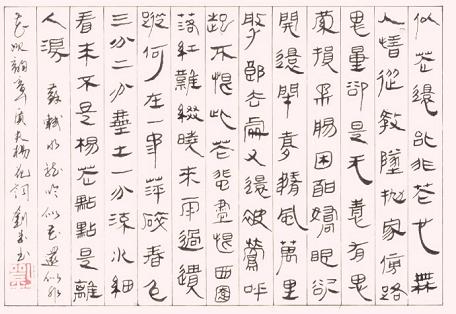 似花還似非花也無
人惜從教墜拋家傍路
思量卻是无情有思
縈損柔腸困酣嬌眼欲
開還閉夢隨風萬里
尋郎去處又還被鶯呼
起不恨此花飛盡恨西園
落紅難綴曉來雨過遺
蹤何在一池萍碎春色
三分二分塵土一分流水細
看來不是楊花點點是離
人淚 蘇軾水龍吟似花還似非
花次韻章質夫楊花詞 劉書